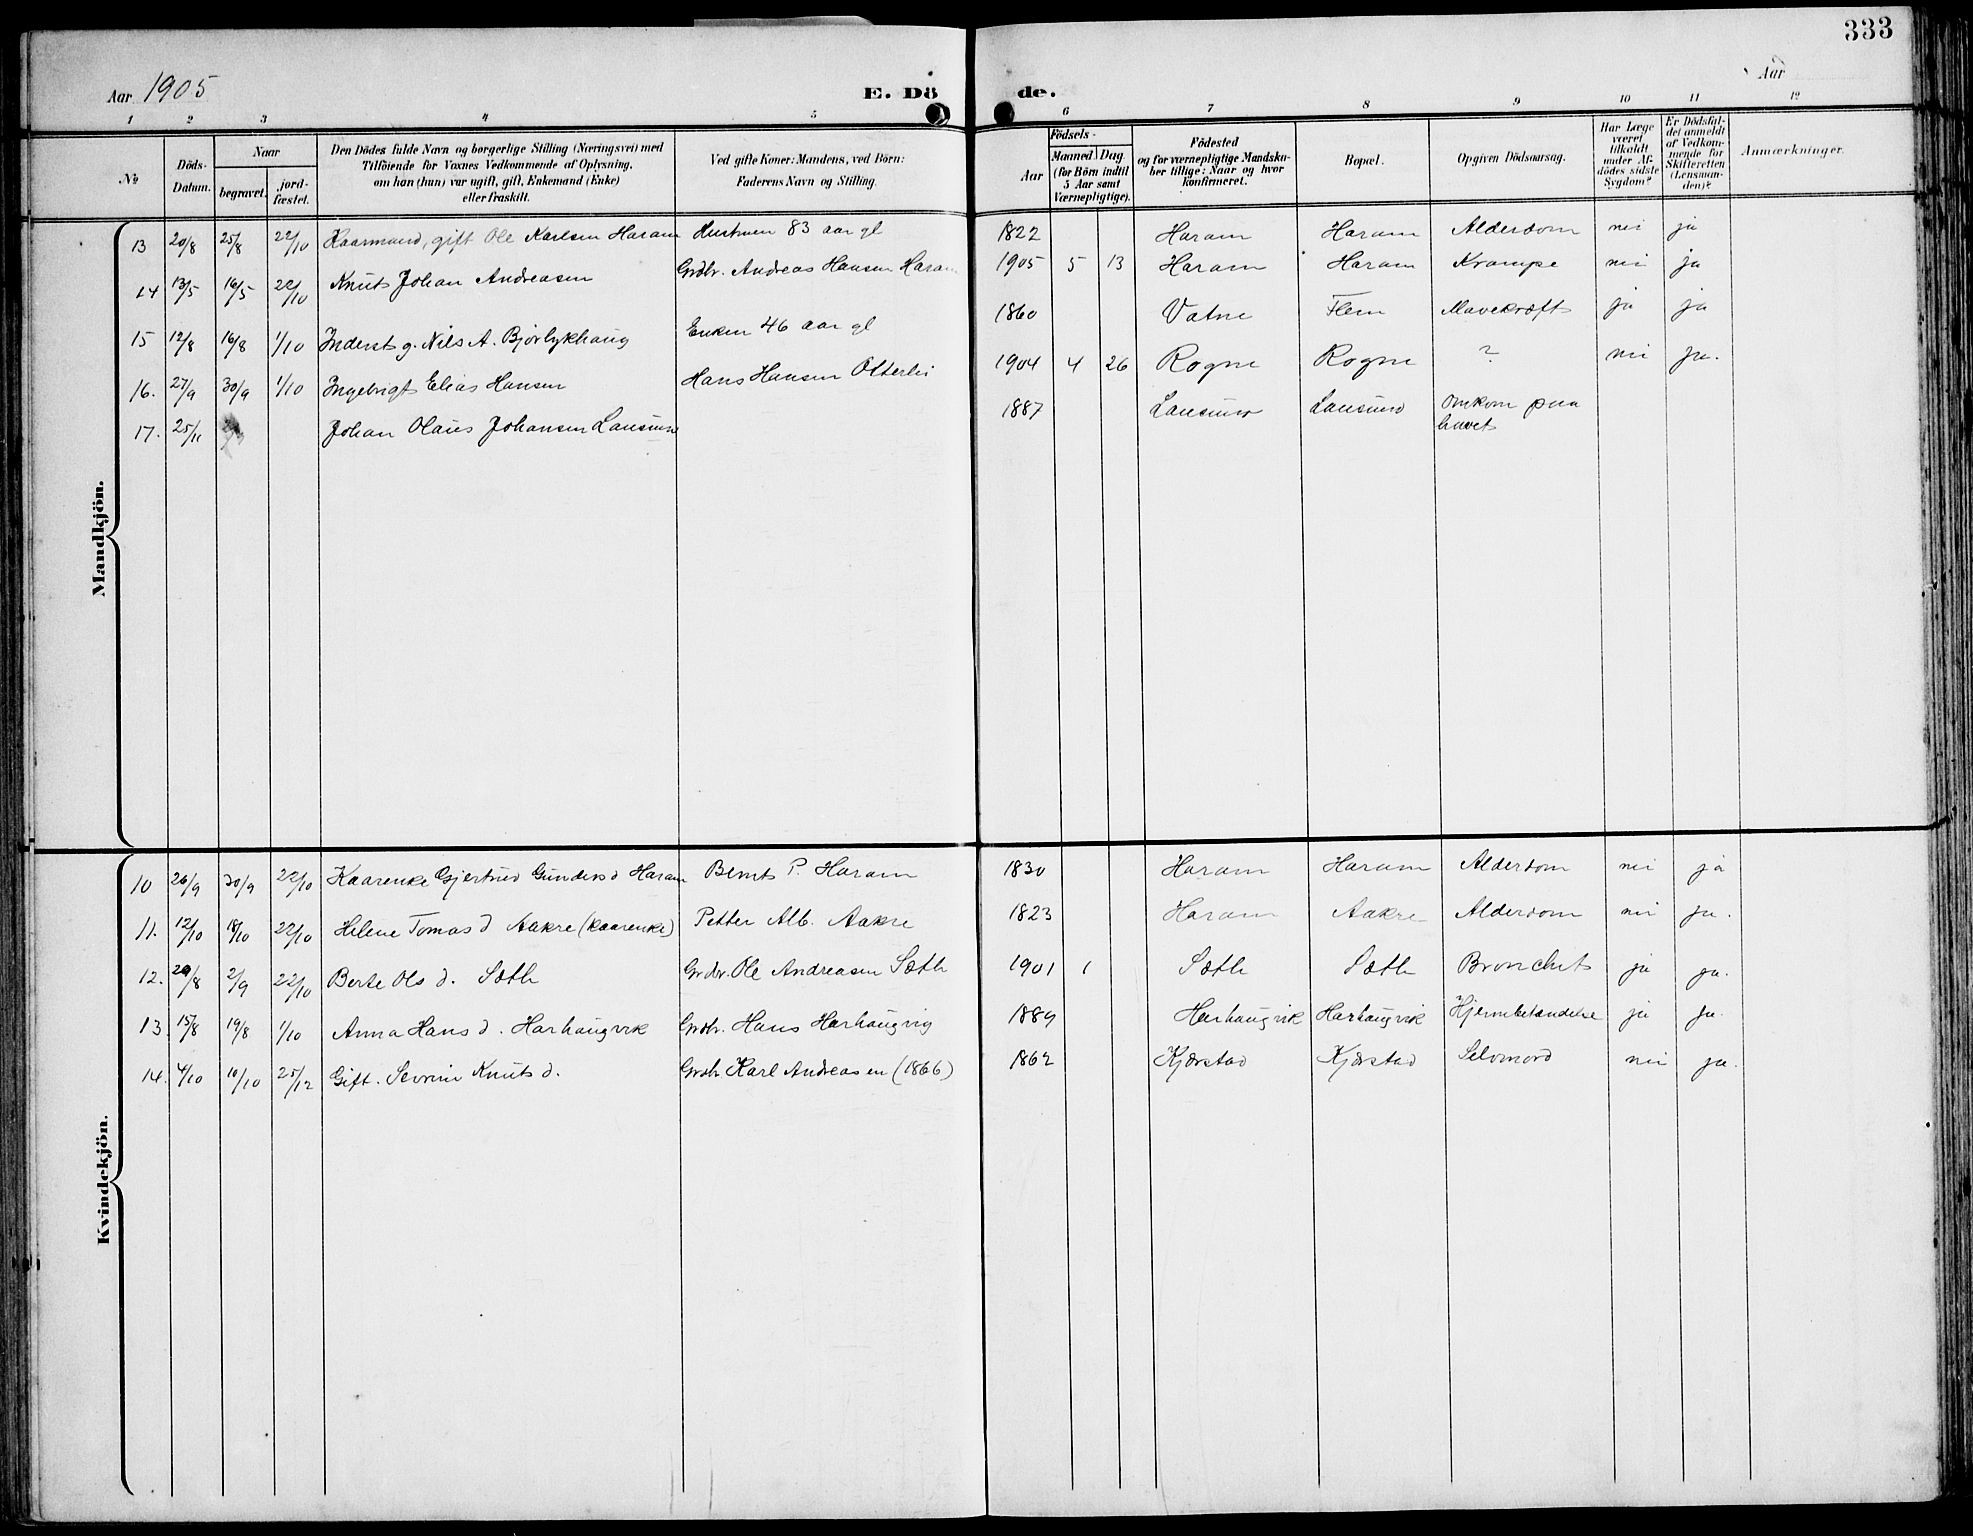 333
Aar 1905 E. Dö de. Aar
1 2 3 4 5 6 7 8 9 10 11 12
№
Döds-Datum.
Naar
begravet.
jord-fæstet.
Den Dödes fulde Navn og borgerlige Stilling (Næringsvei) med
Tilföiende for Voxnes Vedkommende af Oplysning,
om han (hun) var ugift, gift, Enkemand (Enke)
eller fraskilt.
Ved gifte Koner: Mandens, ved Börn:
Faderens Navn og Stilling.
Födsels-
Aar
Maaned Dag
(for Börn indtil
5 Aar samt
Værnepligtige).
Födested
og for værnepligtige Mandska-
ber tillige: Naar og hvor
konfirmeret.
Bopæl.
Opgiven Dödsaarsag.
Har Læge
været
tilkaldt
under Af-
dödes sidste
Sygdom?
Er Dödsfal-
det anmeldt
af Vedkom-
mende for
Skifteretten
(Lensman-
den)?
Anmærkninger.
Mandkjön.
13 20/8 25/8 22/10 Kaarmand, gift Ole Karlsen Haram 83 aar gl 1822 Haram Haram Alderdom nei ja
14 13/5 16/5 22/10 Knut Johan Andreasen Grdbr. Andreas Hansen Haram 1905 5 13 Haram Haram Krampe nei ja
15 12/8 16/8 1/10 Inderst g. Nils A. Bjørlykhaug Enken 46 aar gl 1860 Vatne Flem Mavekræft ja ja
16. 27/9 30/9 1/10 Ingebrigt Elias Hansen Hans Hansen Otterlei 1904 4 26 Rogne Rogne ? nei ja.
17. 25/11 Johan Olaus Johansen Lausund 1887 Lausund Lausund Omkom paa
havet
Kvindekjön.
10 26/9 30/9 22/10 Kaarenke Gjertrud Gundersd Haram Bernt P. Haram 1830 Haram Haram Alderdom nei ja
11. 12/10 18/10 22/10 Helene Tomas d Aakre (kaarenke) Petter Alb. Aakre 1823 Haram Aakre Alderdom nei ja.
12. 29/8 2/9 22/10 Berte Ols d. Sæth Grdbr. Ole Andreasen Sæth 1901 1 Sæth Sæth Bronchit ja ja.
13. 15/8 19/8 1/10 Anna Hans d. Harhaugvik Grdbr. Hans Harhaugvig 1889 Harhaugvik Harhaugvik Hjernebetændelse ja ja.
14. 4/10 10/10 25/12 Gift. Sevrine Knuts d. Grdbr Karl Andreasen (1866) 1862 Kjærstad Kjærstad Selvmord nei ja.